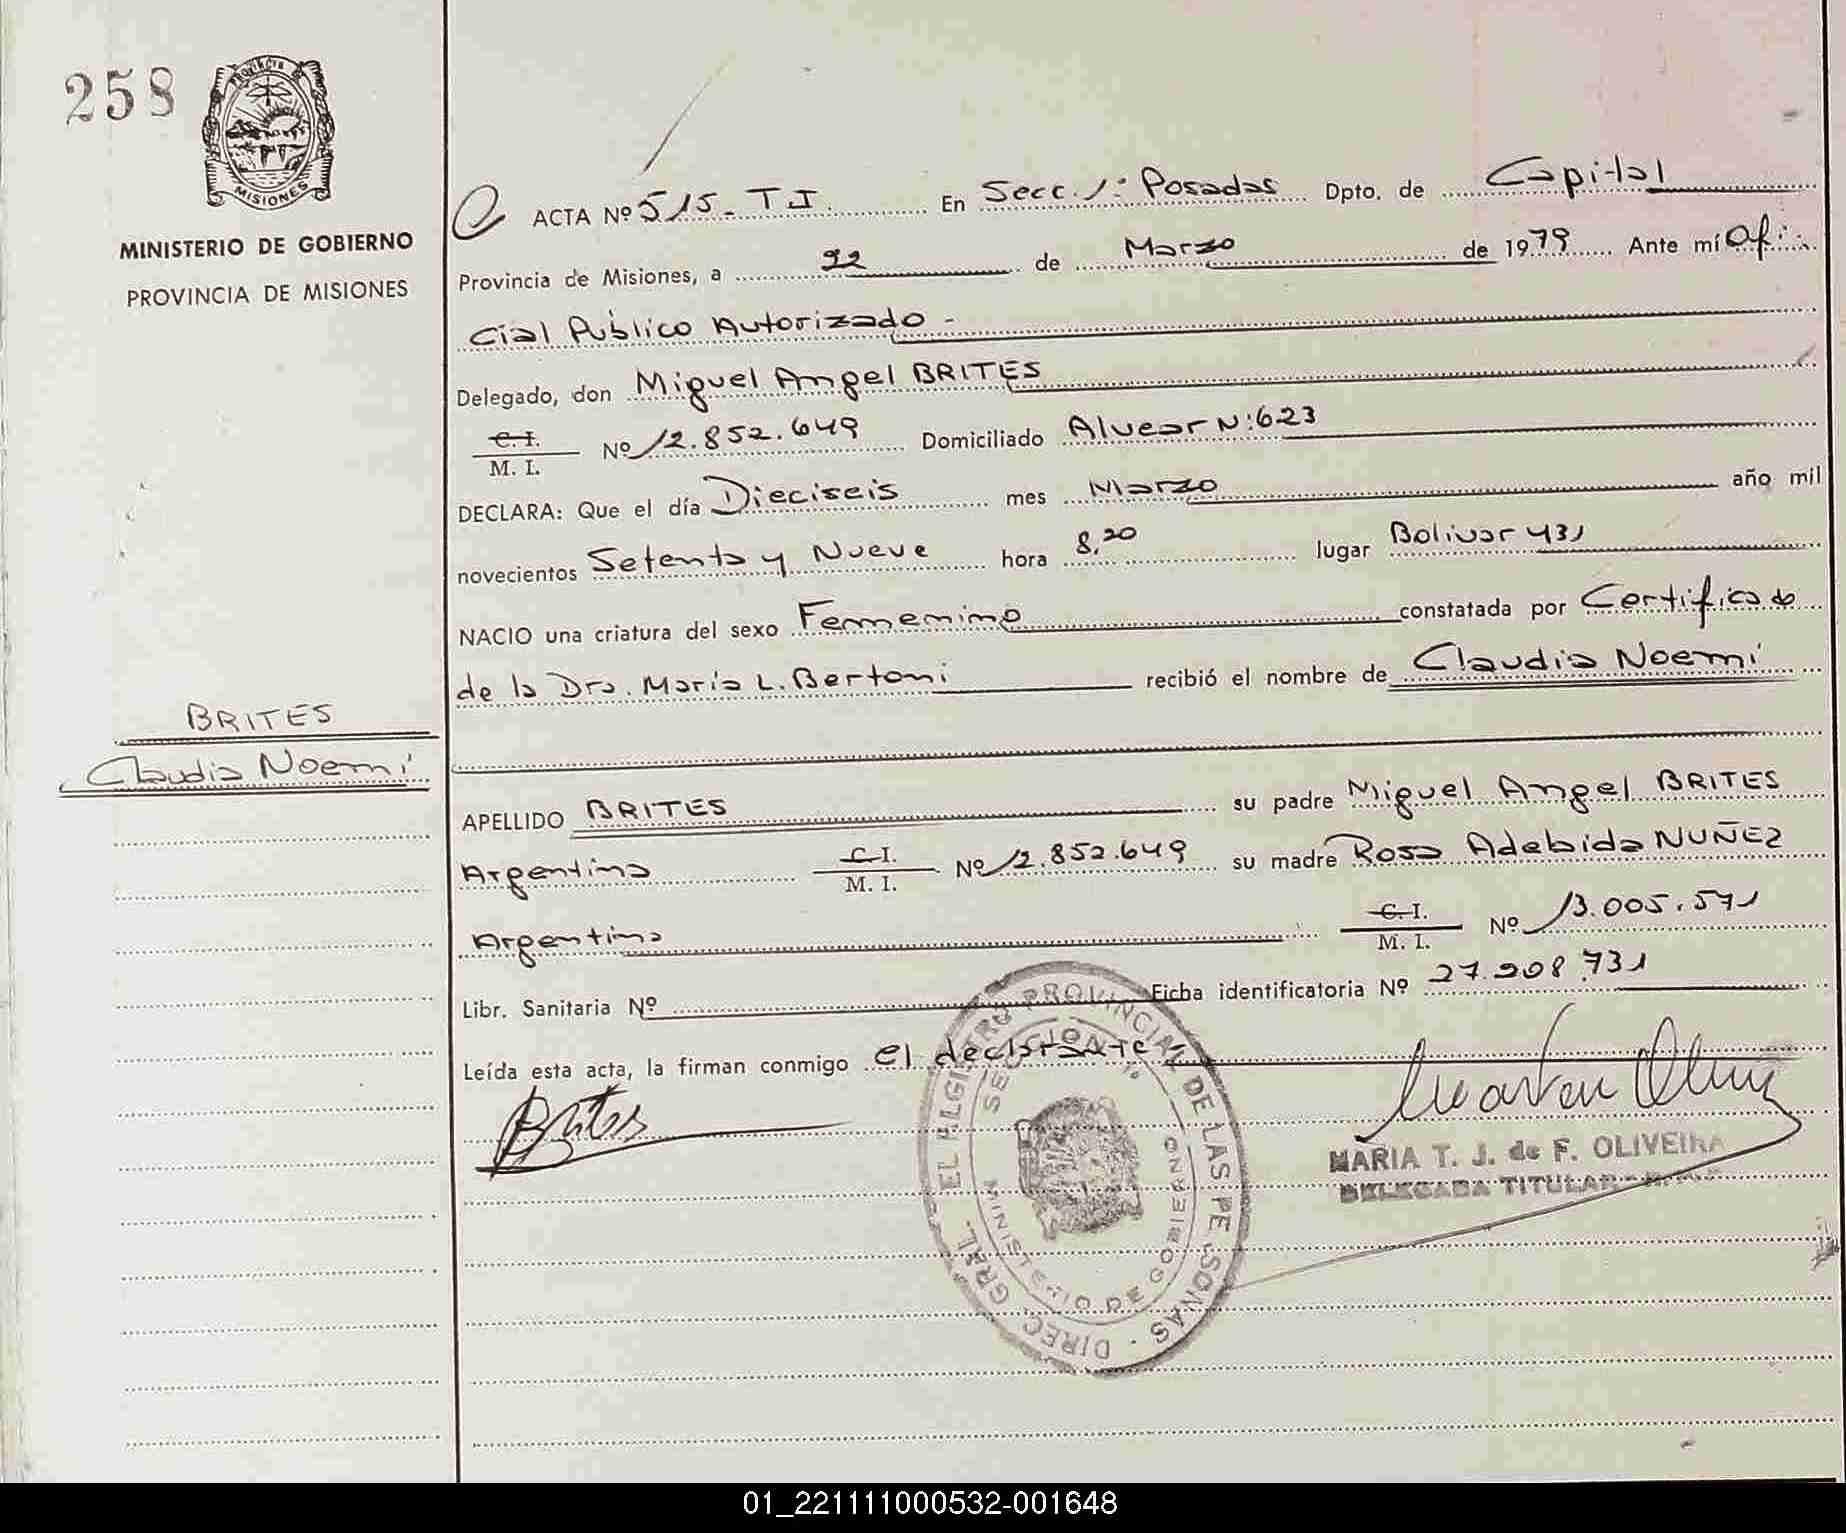 258
PROVINCIA
MISIONES
MINISTERIO DE GOBIERNO
PROVINCIA DE MISIONES
BRITES
Claudia Noemi
ACTA Nº 515- T I. En Secc. 1: Posadas Dpto. de Capital
Provincia de Misiones, a 22 de Marzo de 1979 Ante mí Ofi
cial Público Autorizado -
Delegado, don Miguel Angel BRITES
C. I. / M. I. Nº 12.852.649 Domiciliado Alvear N: 623
DECLARA: Que el día Dieciseis mes Marzo año mil
novecientos Setenta y Nueve hora 8,20 lugar Bolivar 431
NACIO una criatura del sexo Femenino constatada por Certificado
de la Dra. Maria L. Bertoni recibió el nombre de Claudia Noemi
APELLIDO BRITES su padre Miguel Angel BRITES
Argentino C. I. / M. I. Nº 12.852.649 su madre Rosa Adelaida NUÑEZ
Argentina C. I. / M. I. Nº 13.005.571
Libr. Sanitaria Nº Ficha identificatoria Nº 27.208.731
Leída esta acta, la firman conmigo el declarante
Brites
MARIA T. J. de F. OLIVEIRA
DELEGADA TITULAR
DIREC. GRAL. DEL REGISTRO PROVINCIAL DE LAS PERSONAS
SECCION 1º
MINISTERIO DE GOBIERNO
01_221111000532-001648